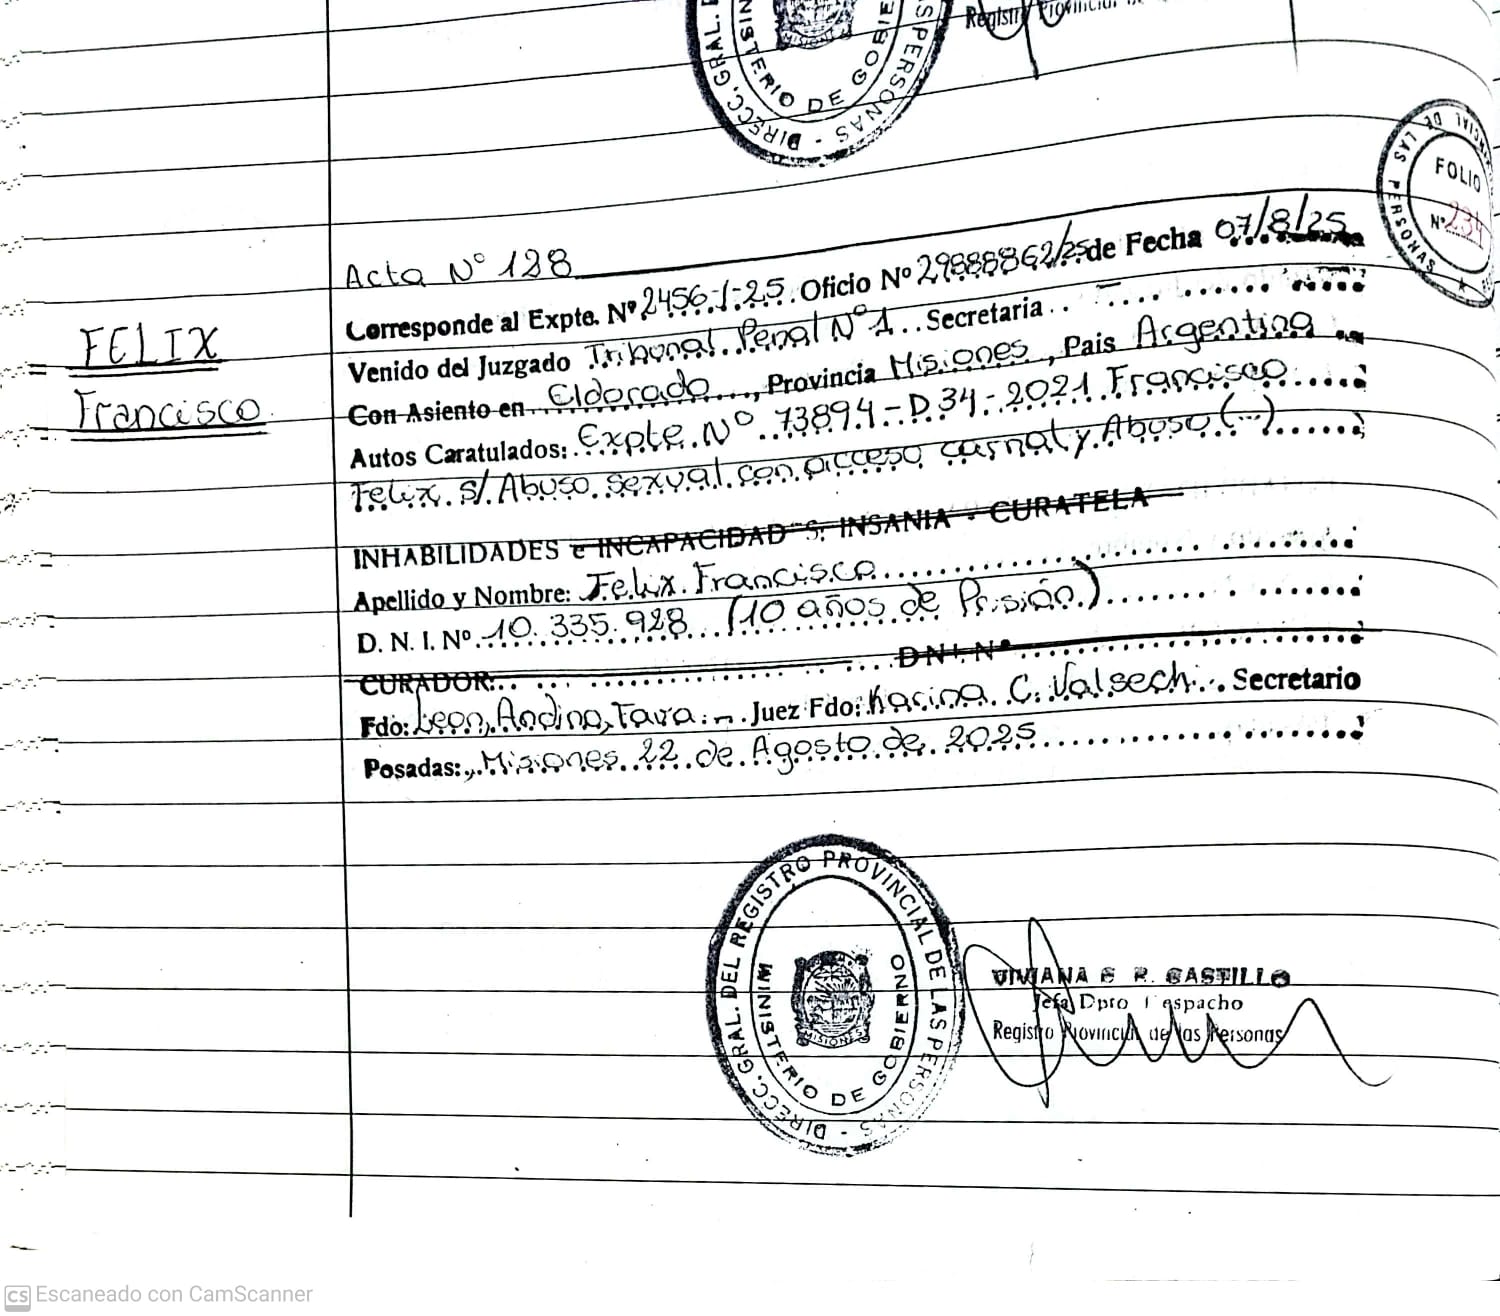 DIRECC. GRAL.
AS PERSONAS -
MINISTERIO DE GOBIE
MISIONES
Registro Provincial de
LAS PERSONAS
FOLIO
Nº 234
FELIX
Francisco
Acta Nº 128
Corresponde al Expte. Nº 2456-1-25. Oficio Nº 29888862/25 de Fecha 07/8/25
Venido del Juzgado Tribunal Penal Nº 1 Secretaria
Con Asiento en Eldorado, Provincia Misiones, Pais Argentina
Autos Caratulados: Expte. Nº 73894-D34-2021 Francisco
Felix s/ Abuso sexual con acceso carnal y Abuso (...)
INHABILIDADES e INCAPACIDADES: INSANIA - CURATELA
Apellido y Nombre: Felix Francisco
D. N. I. Nº 10.335.928 (10 años de Prisión)
CURADOR: D.N.I. Nº
Fdo: Leon, Andino, Fava.- Juez Fdo: Karina C. Valsechi. Secretario
Posadas: Misiones 22 de Agosto de 2025
DIRECC. GRAL. DEL REGISTRO PROVINCIAL DE LAS PERSONAS -
MINISTERIO DE GOBIERNO
MISIONES
VIVIANA R. CASTILLO
Jefa Dpto Despacho
Registro Provincial de las Personas
CS Escaneado con CamScanner